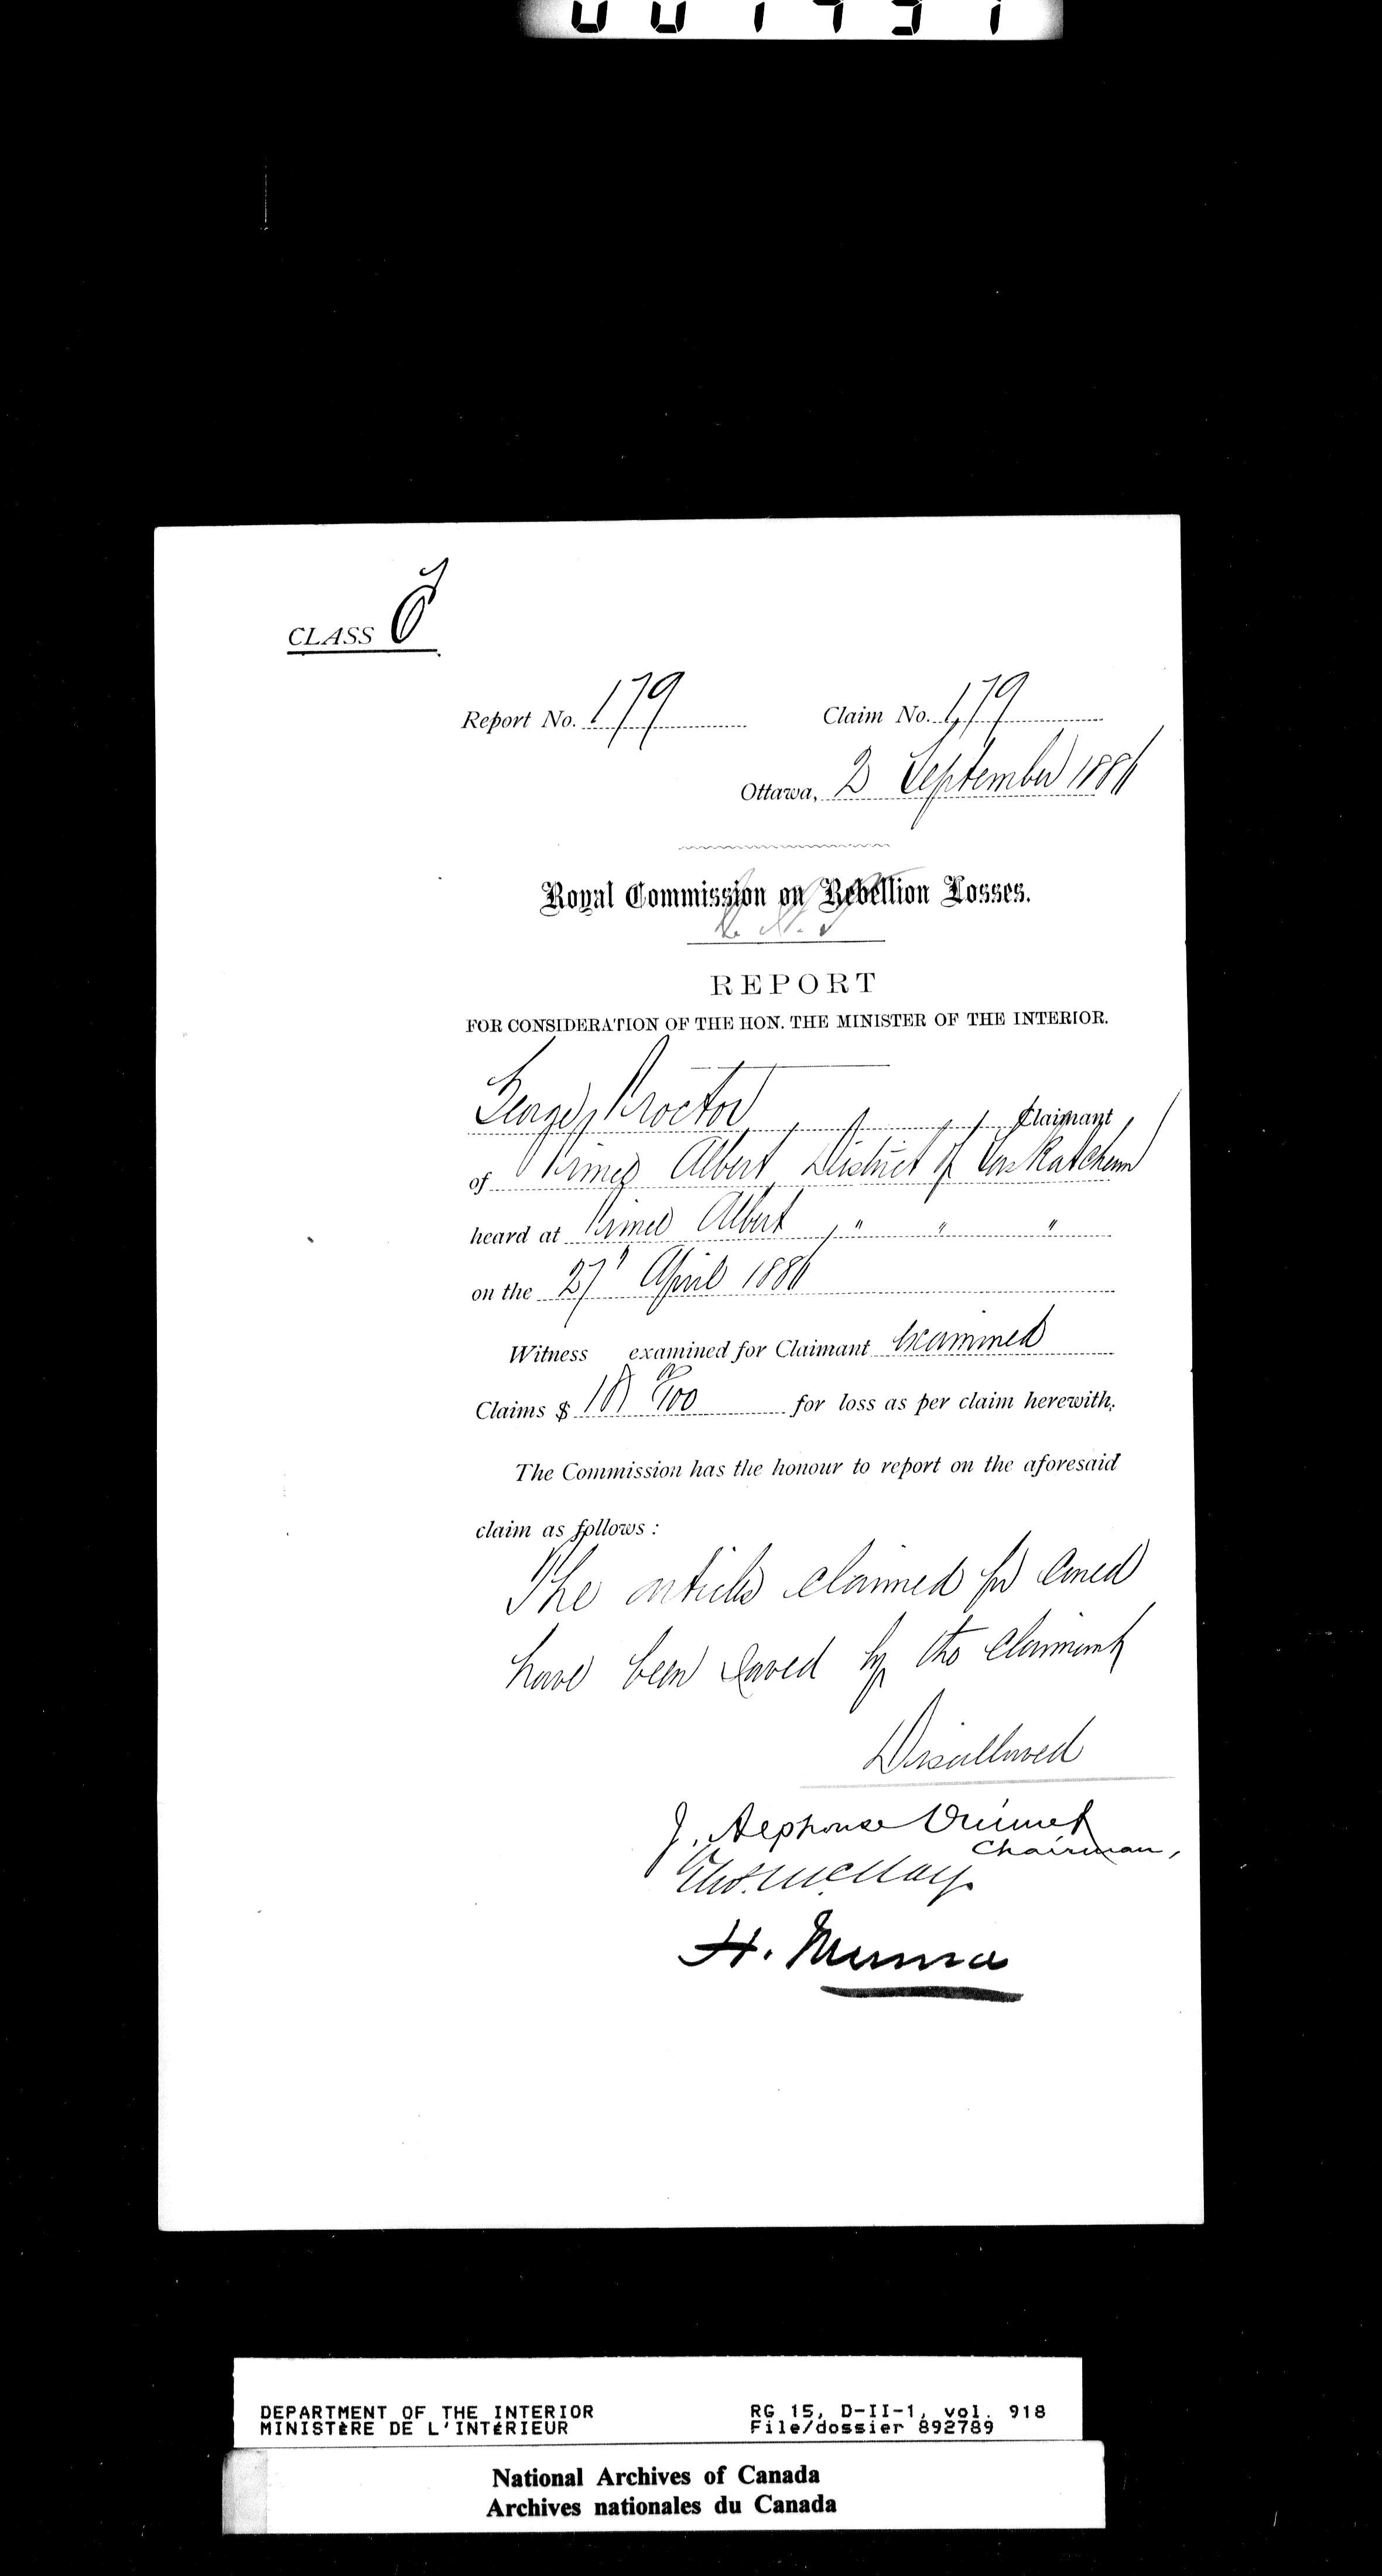 CLASS 6
Report No. 179 Claim No. 179
Ottawa, 2 September 1886
Royal Commission on Rebellion Losses.
REPORT
FOR CONSIDERATION OF THE HON. THE MINISTER OF THE INTERIOR.
George Proctor Claimant
of Prince Albert, District of Saskatchewan
heard at Prince Albert, " " "
on the 27" April 1886
Witness examined for Claimant Examined
Claims $ /100 for loss as per claim herewith.
The Commission has the honour to report on the aforesaid
claim as follows :
The articles claimed for could
have been saved by the claimant
Disallowed
J. Alphonse Ouimet
Chairman,
Thos. McKay
H. Muma
DEPARTMENT OF THE INTERIOR RG 15, D-II-1, vol. 918
MINISTÈRE DE L'INTÉRIEUR File/dossier 892789
National Archives of Canada
Archives nationales du Canada